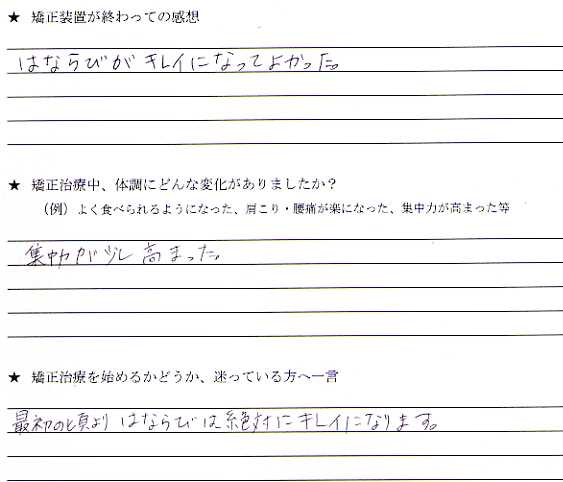 ★ 矯正装置が終わっての感想
はならびが キレイになってよかった。
★ 矯正治療中、体調にどんな変化がありましたか？
（例）よく食べられるようになった、肩こり・腰痛が楽になった、集中力が高まった等
集中力が少し 高まった。
★ 矯正治療を始めるかどうか、迷っている方へ一言
最初のと頃より はならびは絶対に キレイになります。